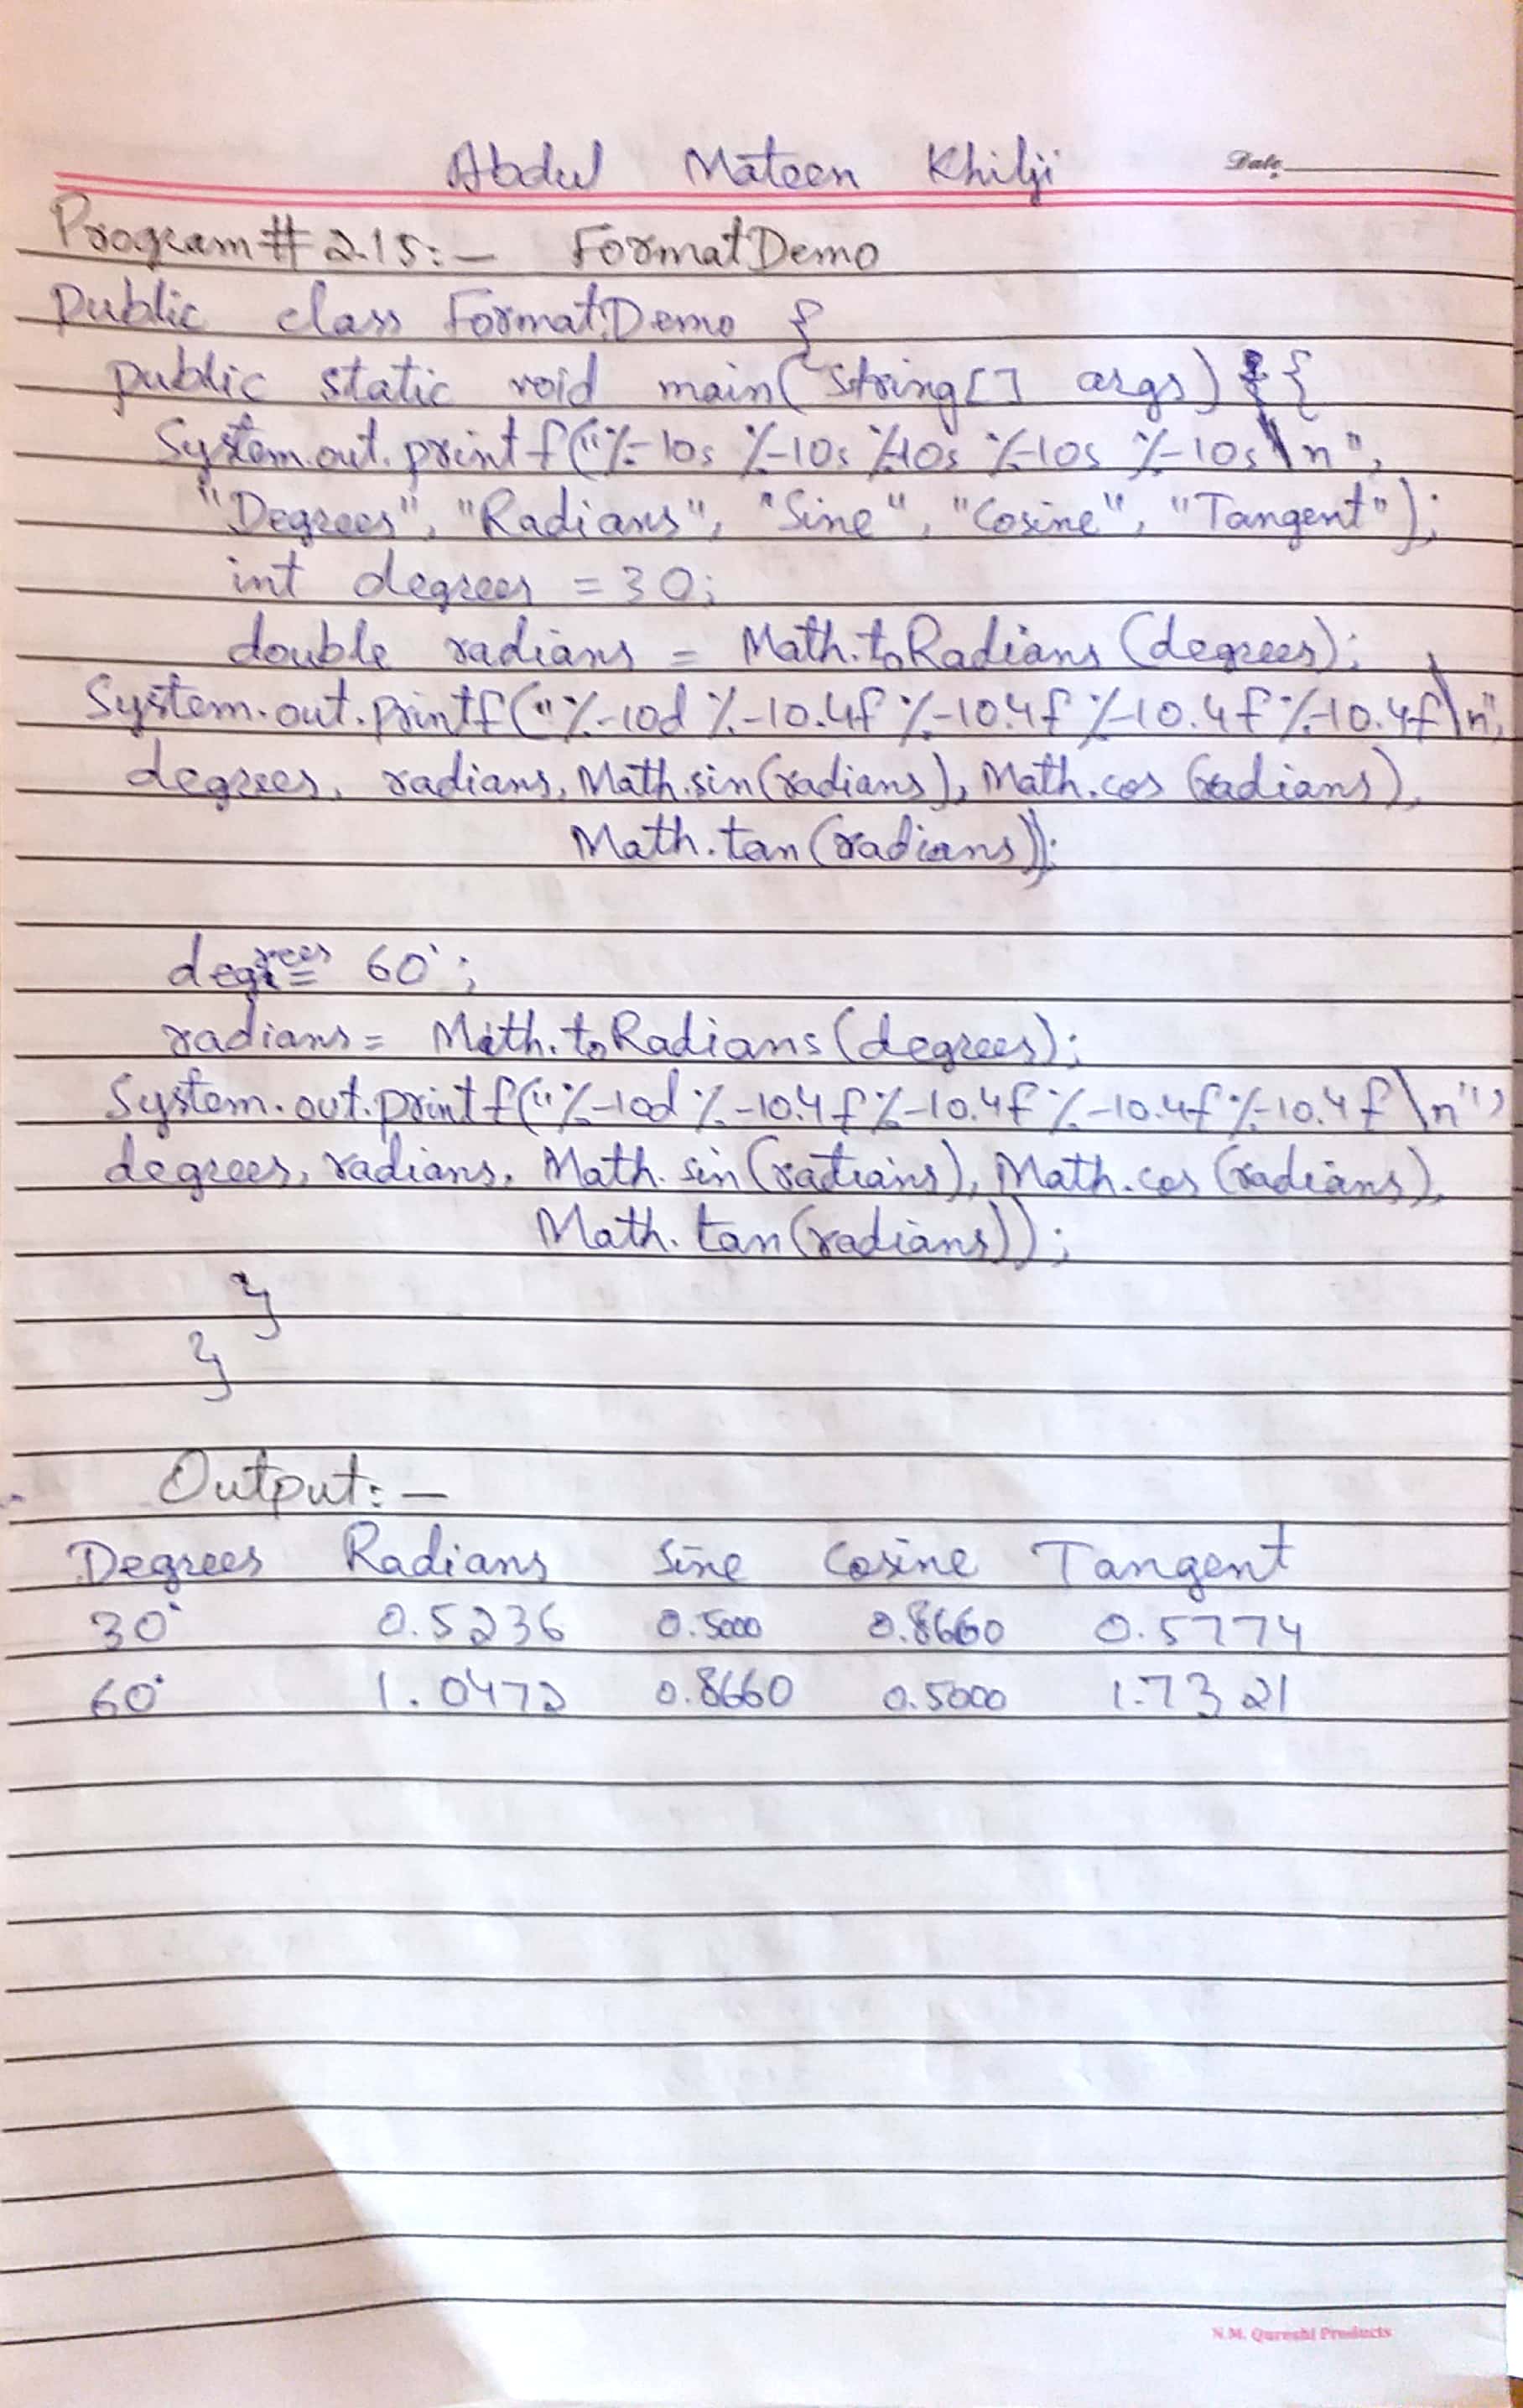 Abdul Mateen Khilji
Date
Program # 2.15:- FormatDemo
public class FormatDemo {
public static void main(String[] args) {
System.out.printf("%-10s %-10s %-10s %-10s %-10s\n",
"Degrees", "Radians", "Sine", "Cosine", "Tangent");
int degrees = 30;
double radians = Math.toRadians(degrees);
System.out.printf("%-10d %-10.4f %-10.4f %-10.4f %-10.4f\n",
degrees, radians, Math.sin(radians), Math.cos(radians),
Math.tan(radians));
degrees = 60°;
radians = Math.toRadians(degrees);
System.out.printf("%-10d %-10.4f %-10.4f %-10.4f %-10.4f\n",
degrees, radians, Math.sin(radians), Math.cos(radians),
Math.tan(radians));
}
}
Output:-
Degrees Radians Sine Cosine Tangent
30° 0.5236 0.5000 0.8660 0.5774
60° 1.0472 0.8660 0.5000 1.7321
N.M. Qureshi Products